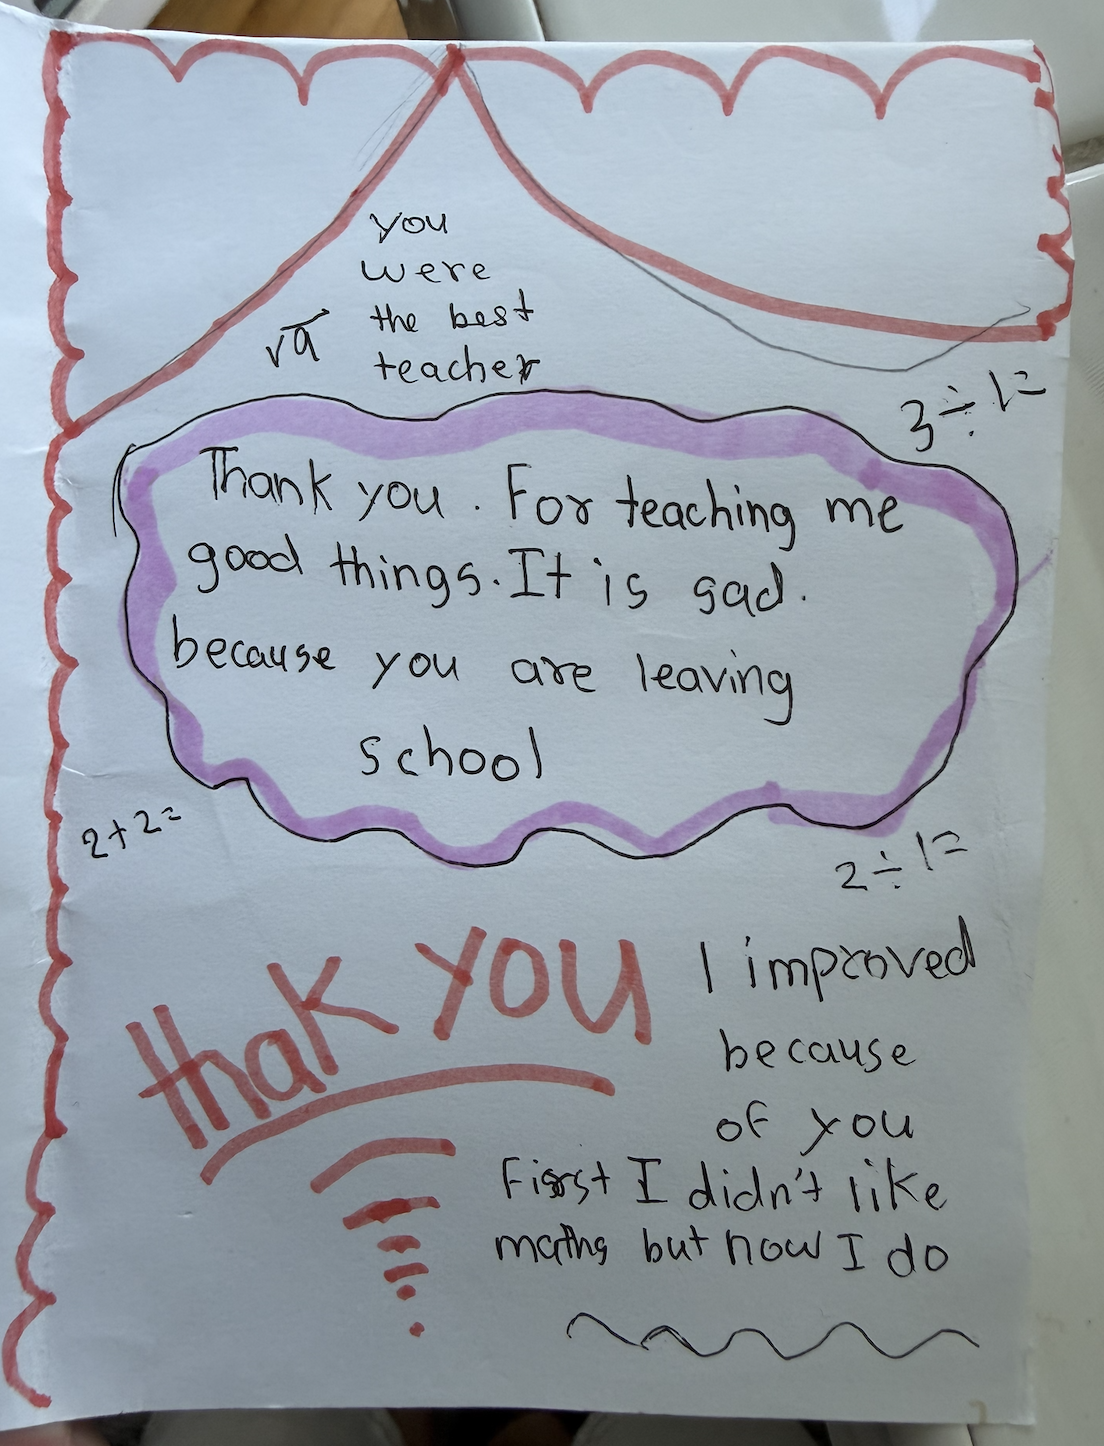 you
were
the best
teacher
√a
3÷1=
Thank you. For teaching me
good things. It is sad.
because you are leaving
school
2+2=
2÷1=
thak you
I improved
because
of you
First I didn't like
maths but now I do